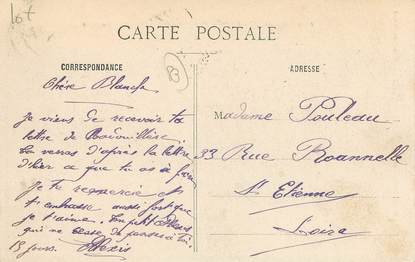 lot
CARTE POSTALE
CORRESPONDANCE
ADRESSE
B
Chère Blanche
Je viens de recevoir ta
lettre de
tu verras d'après la lettre
d'hier ce que tu as à faire
Je te remercie et
t'embrasse aussi fort que
je t'aime. Ton petit
qui ne cesse de penser à toi.
13 jours. Alexis
Madame Pouleau
33 Rue Roannelle
St Etienne
Loire